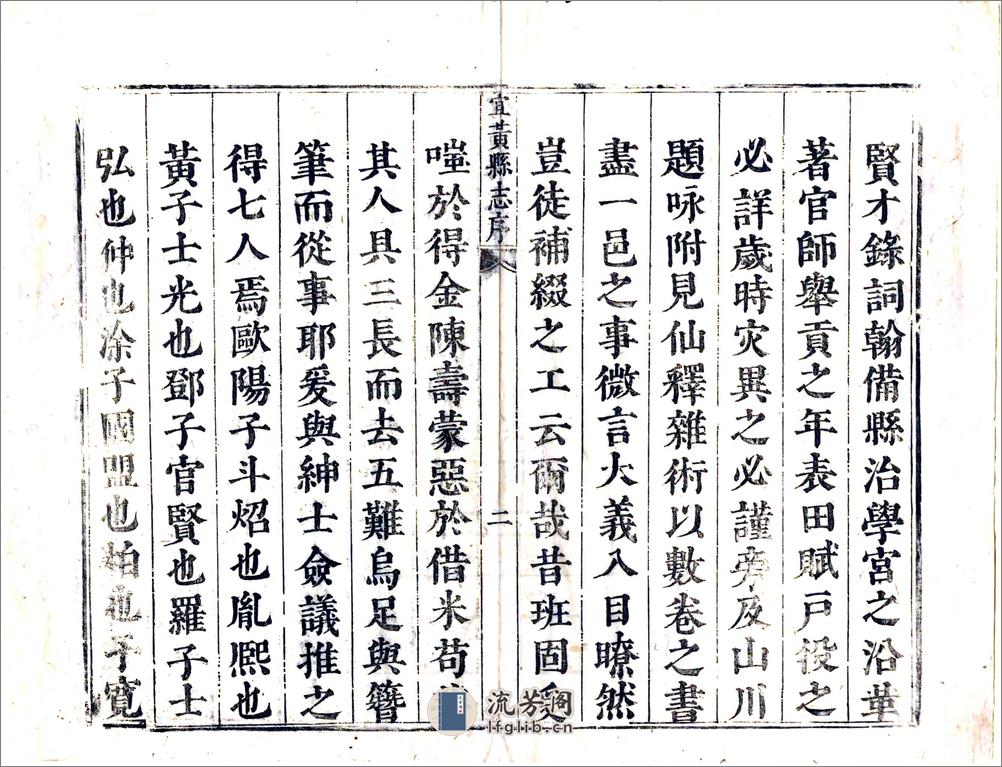 賢才錄詞翰備縣治學宮之沿革
著官師舉貢之年表田賦戸役之
必詳歲時灾異之必謹旁及山川
題咏附見仙釋雜術以數卷之書
盡一邑之事微言大義入目瞭然
豈徒補綴之工云爾哉昔班固受
宜黃縣志序
二
嗤於得金陳壽蒙惡於借米苟
其人具三長而去五難烏足與簪
筆而從事耶爰與紳士僉議推之
得七人焉歐陽子斗炤也胤熙也
黃子士光也鄧子官賢也羅子士
弘也仲也涂子國盟也柏也子寛
流芳阁
lfglib.cn